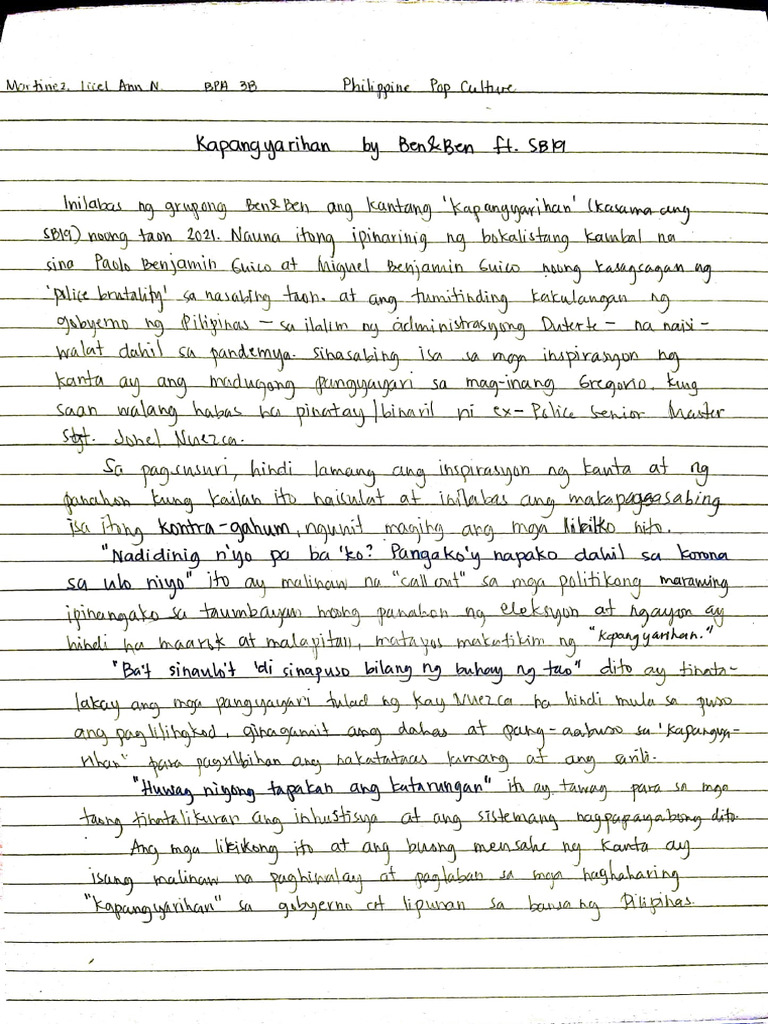 Martinez, Licel Ann N. BPA 3B Philippine Pop Culture
Kapangyarihan by Ben&Ben ft. SB19
Inilabas ng grupong Ben&Ben ang kantang 'Kapangyarihan' (kasama ang
SB19) noong taon 2021. Nauna itong ipinarinig ng bokalistang kambal na
sina Paolo Benjamin Guico at Miguel Benjamin Guico noong kasagsagan ng
'police brutality' sa nasabing taon. at ang tumitinding kakulangan ng
gobyerno ng Pilipinas – sa ilalim ng administrasyong Duterte – na naisi-
walat dahil sa pandemya. Sinasabing isa sa mga inspirasyon ng
kanta ay ang madugong pangyayari sa mag-inang Gregorio, kung
saan walang habas na pinatay/binaril ni ex-Police Senior Master
Sgt. Jonel Nuezca.
Sa pagsusuri, hindi lamang ang inspirasyon ng kanta at ng
panahon kung kailan ito naisulat at inilabas ang makapagsasabing
isa itong kontra-gahum, ngunit maging ang mga likiko nito.
"Nadidinig n'yo pa ba 'ko? Pangako'y napako dahil sa korona
sa ulo niyo" ito ay malinaw na "call out" sa mga politikong maraming
ipinangako sa taumbayan noong panahon ng eleksyon at ngayon ay
hindi na maarok at malapitan, matapos makatikim ng "kapangyarihan."
"Ba't sinaulo't 'di sinapuso bilang ng buhay ng tao" dito ay tinata-
lakay ang mga pangyayari tulad ng kay Nuezca na hindi mula sa puso
ang paglilingkod, ginagamit ang dahas at pang-aabuso sa 'kapangya-
rihan" para pagsilbihan ang nakatataas lamang at ang sarili.
"Huwag niyong tapakan ang katarungan" ito ay tawag para sa mga
taong tinatalikuran ang inhustisya at ang sistemang nagpapayabong dito.
Ang mga likikong ito at ang buong mensahe ng kanta ay
isang malinaw na paghiwalay at paglaban sa mga naghaharing
"kapangyarihan" sa gobyerno at lipunan sa bansang Pilipinas.